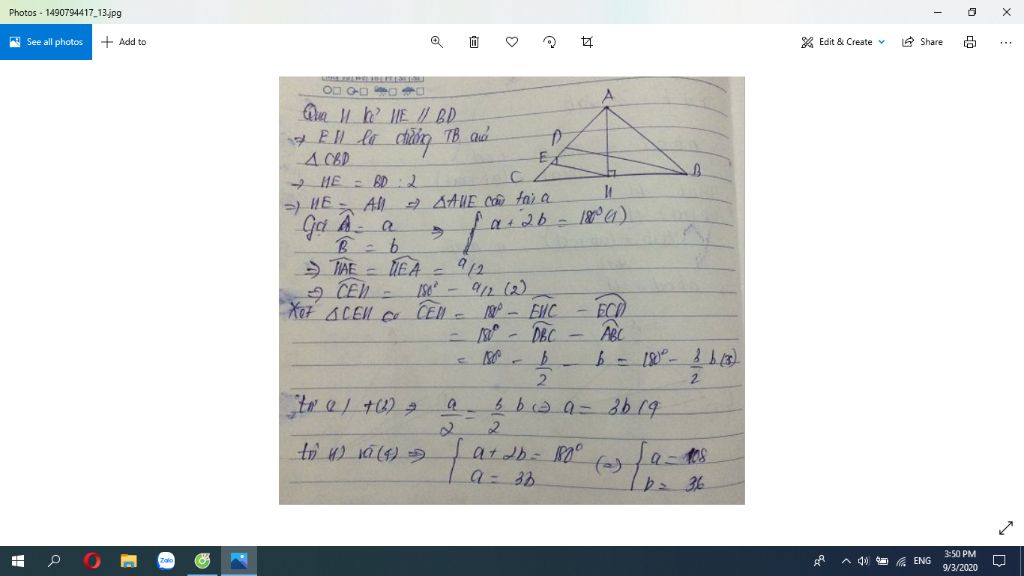 Photos - 1490794417_13.jpg
See all photos
Add to
Edit & Create
Share
Qua H kẻ HE // BD
⇒ EH là đường TB của
△ CBD
→ HE = BD : 2
⇒ HE = AH ⇒ △AHE cân tại a
A
D
E
C
B
H
Gọi Â = a ⇒ { a + 2b = 180° (1)
B̂ = b
⇒ HAE = HEA = a/2
⇒ CEH = 180° - a/2 (2)
Xét △CEH có CEH = 180° - EHC - ECH
= 180° - DBC - ABC
= 180° - b/2 - b = 180° - 3/2 b (3)
+(2) ⇒ a/2 = 3/2 b ⇔ a = 3b (4
từ (1) và (4) ⇒ { a + 2b = 180° (⇒) { a = 108
a = 3b b = 36
Zalo
ENG
3:50 PM
9/3/2020